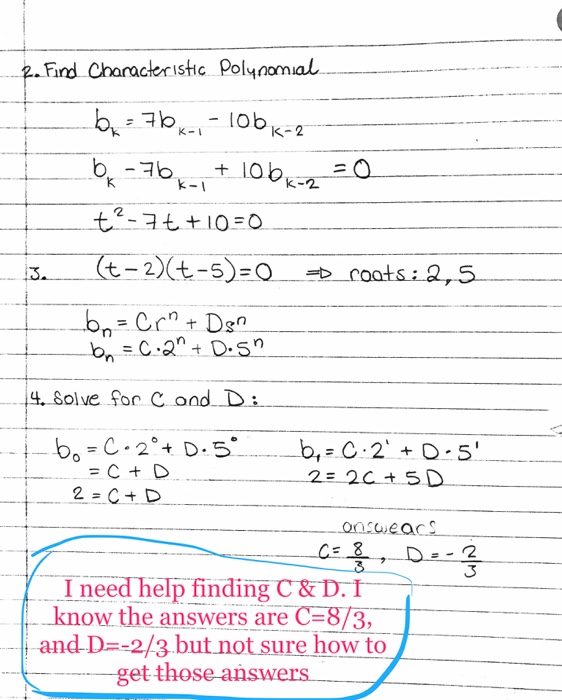 2. Find Characteristic Polynomial
bₖ = 7bₖ₋₁ - 10bₖ₋₂
bₖ - 7bₖ₋₁ + 10bₖ₋₂ = 0
t² - 7t + 10 = 0
3. (t-2)(t-5)=0 ⇒ roots: 2, 5
bₙ = Crⁿ + Dsⁿ
bₙ = C·2ⁿ + D·5ⁿ
4. Solve for C and D:
b₀ = C·2⁰ + D·5⁰
= C + D
2 = C + D
b₁ = C·2¹ + D·5¹
2 = 2C + 5D
answears
C = 8/3, D = -2/3
I need help finding C & D. I
know the answers are C=8/3,
and D=-2/3 but not sure how to
get those answers